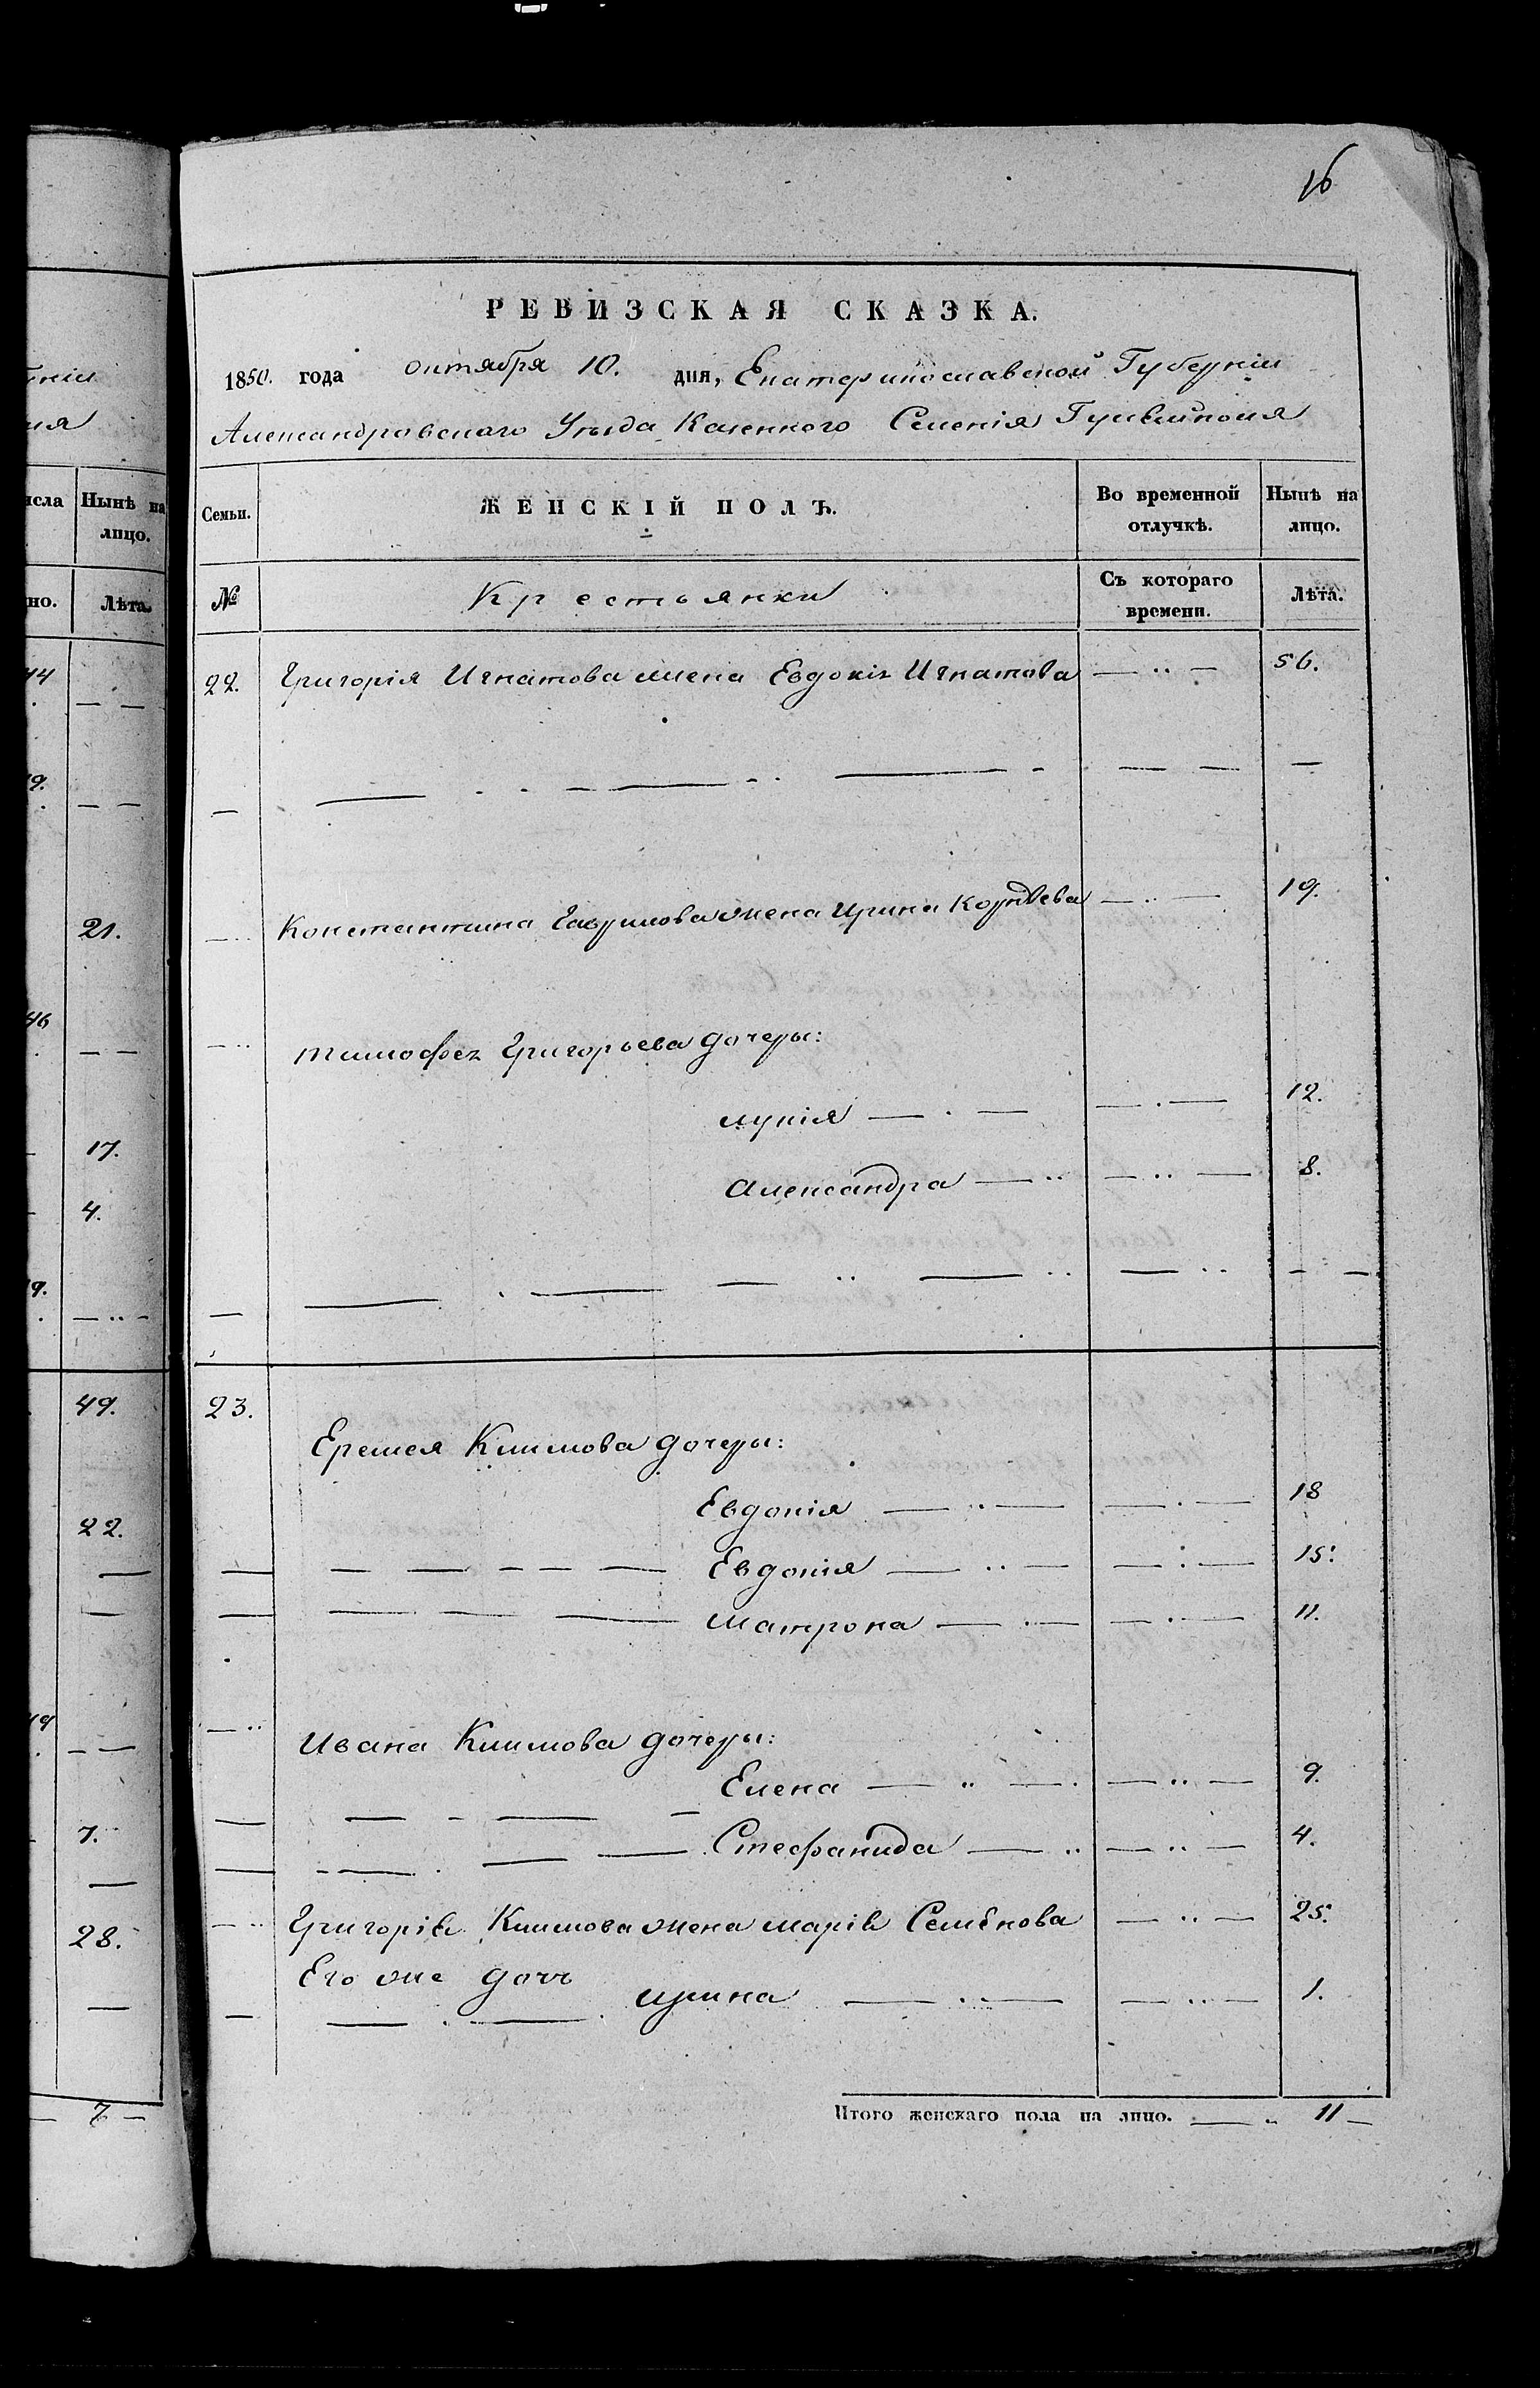 16
РЕВИЗСКАЯ СКАЗКА.
1850. года октября 10. дня, Екатеринославской Губерніи
Александровского Уезда Казенного Селенія Гуляйполя
Семьи. ЖЕНСКІЙ ПОЛЪ. Во временной отлучкѣ. Нынѣ на лицо.
№ Крестьянки Съ котораго времени. Лѣта.
22. Григорія Игнатова жена Евдокія Игнатова — .. — 56.
— .. Константина Гаврилова жена Ирина Корнѣева — .. — 19.
— .. тимофея Григорьева дочеры:
лукія — . — — . — 12.
Александра — .. — .. — 8.
23. Еремея Климова дочеры:
Евдокія — .. — — . — 18
Евдокія — .. — — : — 15.
Матрона — . — — . — 11.
— .. Ивана Климова дочеры:
Елена — .. — . — .. — 9.
Стефанида — .. — .. — 4.
— .. Григорія Климова жена марія Семѣнова — .. — 25.
Его же дочь ирина — . — — .. — 1.
Итого женскаго пола на лицо. — .. 11 —
исла Нынѣ на лицо.
но. Лѣта.
44
9.
21.
46
17.
4.
9.
49.
22.
49
7.
28.
— 7 —